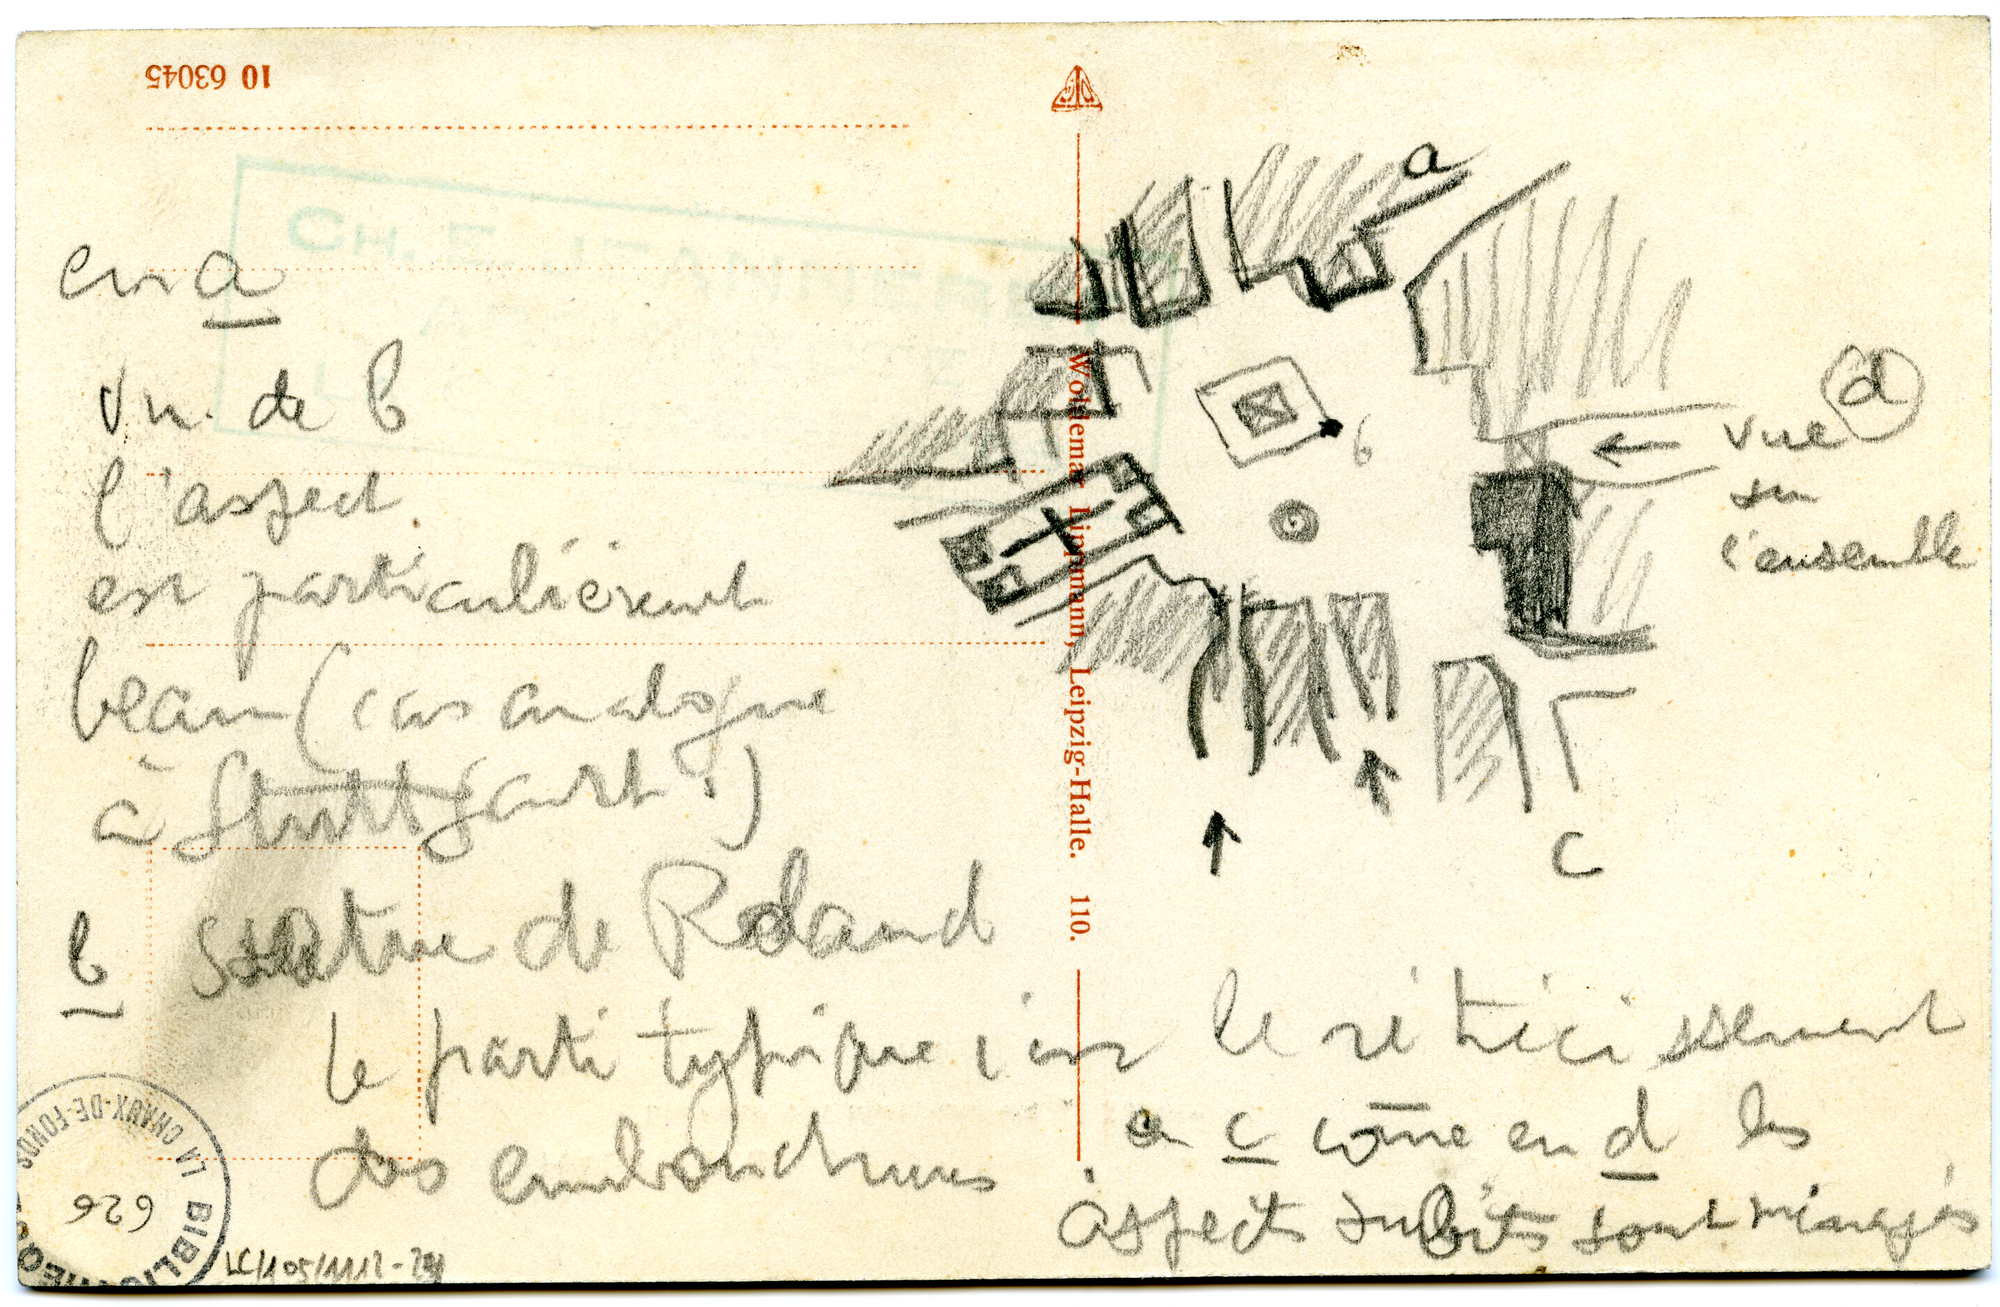 10 63045
CH. E. JEANNERET
en a
vu de b
l'aspect
est particulièrement
beau (cas analogue
à Stuttgart !)
b statue de Roland
le parti typique c'est le rétrécissement
des embouchures
en c come en d les
aspects subits sont ménagés
a
b
d
vue
sur
l'ensemble
c
Woldemar Lippmann, Leipzig-Halle. 110.
LA CHAUX-DE-FONDS
BIBLIOTHEQ
626
LC/105/1112-